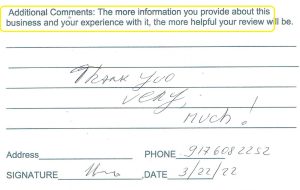 Additional Comments: The more information you provide about this
business and your experience with it, the more helpful your review will be.
Thank you
very,
much!
Address PHONE 9176082252
SIGNATURE ,DATE 3/22/22